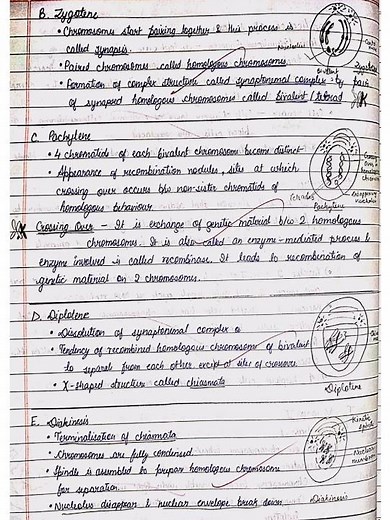 B. Zygotene
• Chromosomes start pairing together & this process is
called synapsis.
• Paired chromosomes called homologous chromosomes.
• Formation of complex structure called synaptonemal complex by pair
of synapsed homologous chromosomes called bivalent / tetrad
Nucleolus
Bivalent
Zygotene
C. Pachytene
• 4 chromatids of each bivalent chromosome become distinct
• Appearance of recombination nodules, sites at which
crossing over occurs b/w non-sister chromatids of
homologous
Tetrads
Pachytene
Crossing Over - It is exchange of genetic material b/w 2 homologous
chromosomes. It is also called an enzyme-mediated process &
enzyme involved is called recombinase. It leads to recombination of
genetic material on 2 chromosomes.
D. Diplotene
• Dissolution of synaptonemal complex
• Tendency of recombined homologous chromosomes of bivalent
to separate from each other except at sites of crossover
• X-shaped structure called chiasmata
Diplotene
E. Diakinesis
• Terminalisation of chiasmata
• Chromosomes are fully condensed
• Spindle is assembled to prepare homologous chromosome
for separation.
• Nucleolus disappear & nuclear envelope break down
Diakinesis